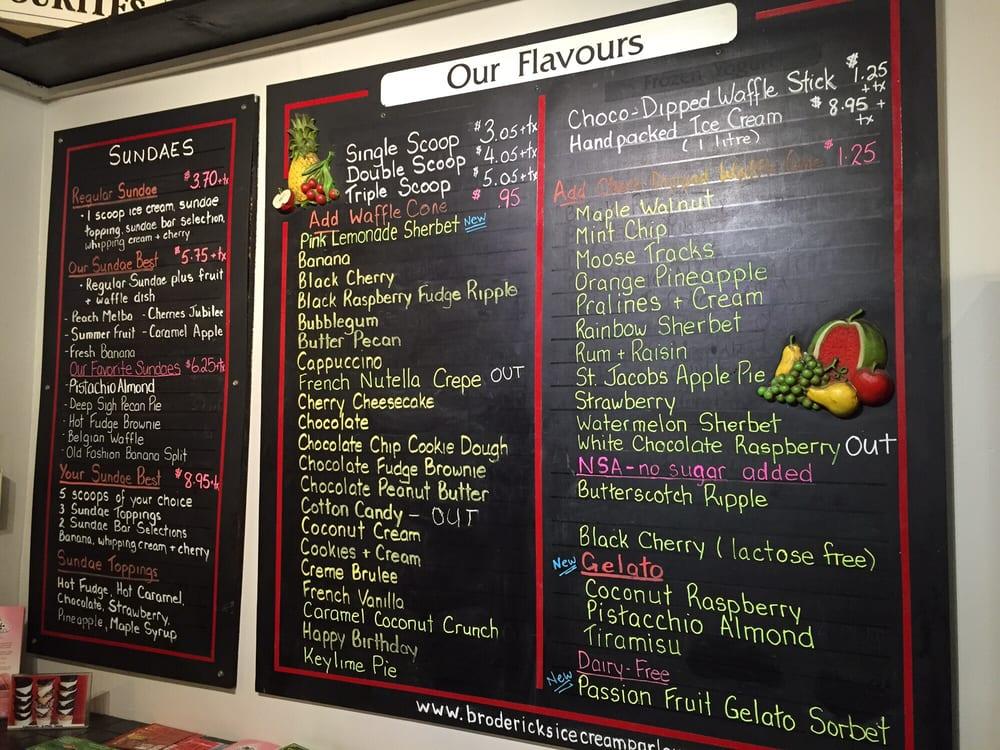 OURITES
SUNDAES
Regular Sundae $3.70+tx
• 1 scoop ice cream, sundae
topping, sundae bar selection,
whipping cream + cherry
Our Sundae Best $5.75+tx
• Regular Sundae plus fruit
+ waffle dish
- Peach Melba - Cherries Jubilee
- Summer Fruit - Caramel Apple
- Fresh Banana
Our Favorite Sundaes $6.25+tx
- Pistachio Almond
- Deep Sigh Pecan Pie
- Hot Fudge Brownie
- Belgian Waffle
- Old Fashion Banana Split
Your Sundae Best $8.95+tx
5 scoops of your choice
3 Sundae Toppings
2 Sundae Bar Selections
Banana, whipping cream + cherry
Sundae Toppings
Hot Fudge, Hot Caramel,
Chocolate, Strawberry,
Pineapple, Maple Syrup
Our Flavours
Single Scoop $3.05+tx
Double Scoop $4.05+tx
Triple Scoop $5.05+tx
Add Waffle Cone $ .95
Pink Lemonade Sherbet New
Banana
Black Cherry
Black Raspberry Fudge Ripple
Bubblegum
Butter Pecan
Cappuccino
French Nutella Crepe OUT
Cherry Cheesecake
Chocolate
Chocolate Chip Cookie Dough
Chocolate Fudge Brownie
Chocolate Peanut Butter
Cotton Candy - OUT
Coconut Cream
Cookies + Cream
Creme Brulee
French Vanilla
Caramel Coconut Crunch
Happy Birthday
Keylime Pie
Frozen Yogurt
Choco-Dipped Waffle Stick $1.25
++tx
Handpacked Ice Cream $8.95+
(1 litre) tx
Add Choco Dipped Waffle Cone $1.25
Maple Walnut
Mint Chip
Moose Tracks
Orange Pineapple
Pralines + Cream
Rainbow Sherbet
Rum + Raisin
St. Jacobs Apple Pie
Strawberry
Watermelon Sherbet
White Chocolate Raspberry OUT
NSA - no sugar added
Butterscotch Ripple
Black Cherry (lactose free)
New Gelato
Coconut Raspberry
Pistacchio Almond
Tiramisu
Dairy-Free
New Passion Fruit Gelato Sorbet
www.brodericksicecreamparlo